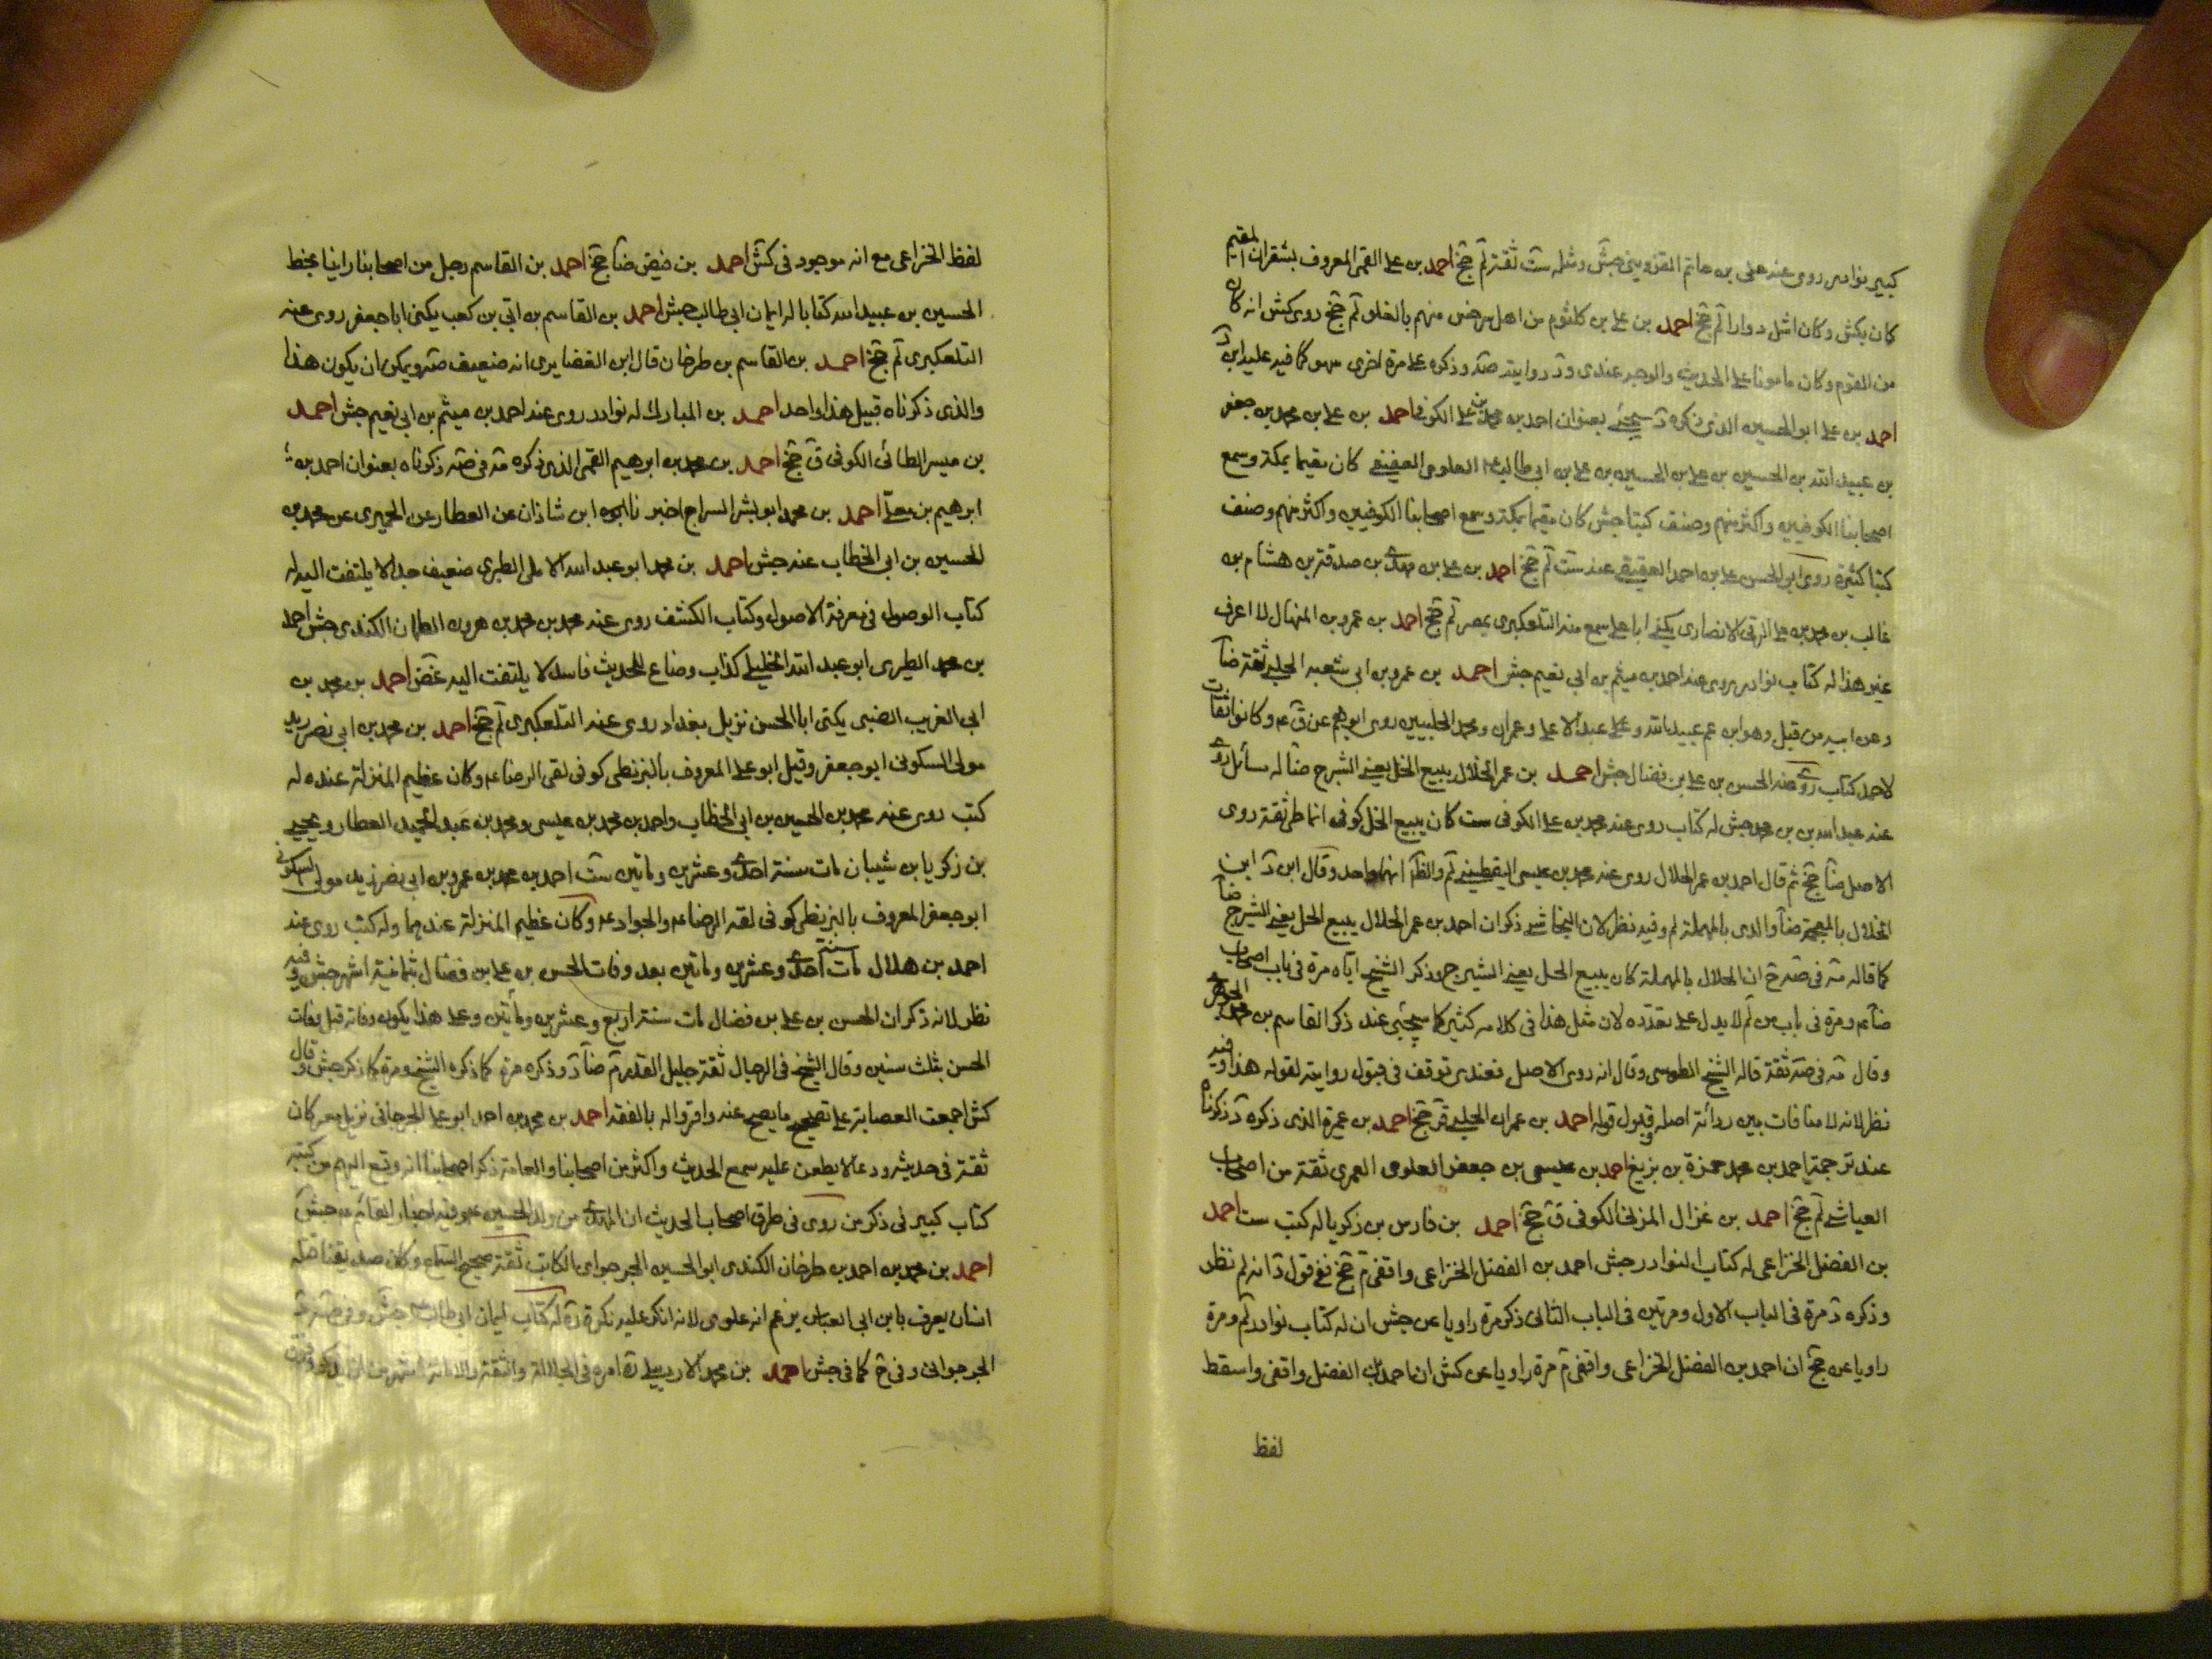 كبير نوادر روى عنه على بن حاتم القزوينى جش ومثله ست ثقة لم جخ احمد بن على القمى المعروف بشقران المقيم
كان بكش وكان اشل دوارا لم جخ احمد بن على بن كلثوم من اهل سرخس متهم بالغلو لم جخ روى كش انه كان
من القوم وكان مامونا على الحديث والوجه عندى رد روايته صه وذكره على مرة اخرى سهو كما فيه عليه ابن د
احمد بن على ابو الحسين الذى ذكره د سيجئ بعنوان احمد بن محمد بن على الكوفى احمد بن على بن محمد بن جعفر
بن عبيد الله بن الحسين بن على بن الحسين بن على بن ابى طالب ع العلوى العقيقى كان مقيما بمكة وسمع
اصحابنا الكوفيين واكثر منهم وصنف كتبا جش كان مقيما بمكة وسمع اصحابنا الكوفيين واكثر منهم وصنف
كتبا كثيرة روى ابو الحسن على بن احمد العقيقى عنه ست لم جخ احمد بن على بن مهدى بن صدقة بن هشام بن
غالب بن محمد بن على الرقى الانصارى يكنى ابا على سمع منه التلعكبرى بمصر لم جخ احمد بن عمرو بن المنهال لا اعرف
غير هذا له كتاب نوادر روى عنه احمد بن ميثم بن ابى نعيم جش احمد بن عمرو بن ابى شعبه الحلبى ثقة ضا
وعن ابيه من قبل وهو ابن عم عبيد الله وعلى عبد الاعلى وعمران ومحمد الحلبيين روى ابوهم عن ق ع وكانوا ثقات
لاحمد كتاب روى عنه الحسن بن على بن فضال جش احمد بن عمر الحلال يبيع الحل يعنى الشيرج ضا له مسائل روى
عنه عبد الله بن محمد جش له كتاب روى عنه محمد بن على الكوفى ست كان يبيع الحل كوفى انماطى ثقة روى
الاصل ضا جخ ثم قال احمد بن عمر الحلال روى عنه محمد بن عيسى اليقطينى لم والظ انهما واحد وقال ابن د ابن
الخلال بالمعجمة ضا والذى بالمهملة لم وفيه نظر لان النجاشى ذكر ان احمد بن عمر الحلال يبيع الحل يعنى الشيرج ضا
كما قاله مه فى صه خ ان الحلال بالمهملة كان يبيع الحل يعنى الشيرج وذكر الشيخ اياه مرة فى باب اصحاب
ضا ع ومرة فى باب من لم لا يدل على تعدده لان مثل هذا فى كلامه كثير كما سيجئ عند ذكر القاسم بن محمد الجوهرى
وقال مه فى صه ثقة قاله الشيخ الطوسى وقال انه روى الاصل فعندى توقف فى قبول روايته لقوله هذا وفيه
نظر لانه لا منافات بين ردائة اصله وقبول قوله احمد بن عمران الحلبى قر جخ احمد بن عميرة الذى ذكره د ذكرناه
عند ترجمة احمد بن محمد حمزة بن بزيغ احمد بن عيسى بن جعفر العلوى العمرى ثقة من اصحاب
العياشى لم جخ احمد بن غزال المزنى الكوفى ق جخ احمد بن فارس بن زكريا له كتب ست احمد
بن الفضل الخزاعى له كتاب النوادر جش احمد بن الفضل الخزاعى واقفى م جخ فى قول د انه لم نظر
وذكره د مرة فى الباب الاول ومرتين فى الباب الثانى ذكر مرة راويا عن جش ان له كتاب نوادر لم ومرة
راويا عن جخ ان احمد بن الفضل الخزاعى واقفى م مرة راويا عن كش ان احمد بن الفضل واقفى واسقط
لفظ
لفظ الخزاعى مع انه موجود فى كش احمد بن فيض ضا جخ احمد بن القاسم رجل من اصحابنا راينا بخط
الحسين بن عبيد الله كتابا له ايمان ابى طالب جش احمد بن القاسم بن ابى بن كعب يكنى ابا جعفر روى عنه
التلعكبرى لم جخ احمد بن القاسم بن طرخان قال ابن الغضايرى انه ضعيف صه ويمكن ان يكون هذا
والذى ذكرناه قبيل هذا واحد احمد بن المبارك له نوادر روى عنه احمد بن ميثم بن ابى نعيم جش احمد
بن ميسر الطائى الكوفى ق جخ احمد بن محمد بن ابرهيم القمى الذى ذكره مه فى صه ذكرناه بعنوان احمد بن
ابرهيم بن معلى احمد بن محمد ابو بشر السراج اخبرنا ابن شاذان عن العطار عن الحميرى عن محمد بن
الحسين بن ابى الخطاب عنه جش احمد بن محمد ابو عبد الله الاملى الطبرى ضعيف جدا لا يلتفت اليه له
كتاب الوصول فى معرفة الاصول وكتاب الكشف روى عنه محمد بن محمد بن هرون الكندى جش احمد
بن محمد الطبرى ابو عبد الله الخليلى كذاب وضاع للحديث فاسد لا يلتفت اليه غض احمد بن محمد بن
ابى الغريب الضبى يكنى ابا الحسن نزيل بغداد روى عنه التلعكبرى لم جخ احمد بن محمد بن ابى نصر زيد
مولى السكونى ابو جعفر وقيل ابو على المعروف بالبزنطى كوفى لقى الرضا ع وكان عظيم المنزلة عنده له
كتب روى عنه محمد بن الحسين بن ابى الخطاب واحمد بن محمد بن عيسى ومحمد بن عبد الحميد العطار ويحيى
بن زكريا بن شيبان مات سنة احدى وعشرين ومأتين ست احمد بن محمد بن عمرو بن ابى نصر زيد مولى السكونى
ابو جعفر المعروف بالبزنطى كوفى لقى الرضا ع والجواد ع وكان عظيم المنزلة عندهما وله كتب روى عنه
احمد بن هلال مات سنة احدى وعشرين ومأتين بعد وفات الحسن بن على بن فضال بثمانية اشهر جش وفيه
نظر لانه ذكر ان الحسن بن على بن فضال مات سنة اربع وعشرين ومأتين وعلى هذا يكون وفاته قبل وفات
الحسن بثلث سنين وقال الشيخ فى الرجال ثقة جليل القدر م ضا د وذكره مرة كما ذكره الشيخ ومرة كما ذكر جش وقال
كش اجمعت العصابة على تصحيح ما يصح عنه واقروا له بالفقه احمد بن محمد بن احمد ابو على الجرجانى نزيل مصر كان
ثقة فى حديثه ورعا لا يطعن عليه سمع الحديث واكثر من اصحابنا والعامة ذكر اصحابنا انه وقع اليهم من كتبه
كتاب كبير فى ذكر من روى فى طرق اصحاب الحديث ان المهدى من ولد الحسين ع وفيه اخبار القائم ع جش
احمد بن محمد بن احمد بن طرخان الكندى ابو الحسين الجرجراى الكاتب ثقة صحيح السماع وكان صديقنا قتله
انسان يعرف بابن ابى العباس يزعم انه علوى لانه انكر عليه نكرة ره له كتاب ايمان ابى طالب جش وفى صه د
الجرجوانى وفى خ كما فى جش احمد بن محمد الاردبيلى ره امره فى الجلالة والثقة والامانة اشهر من ان يذكر